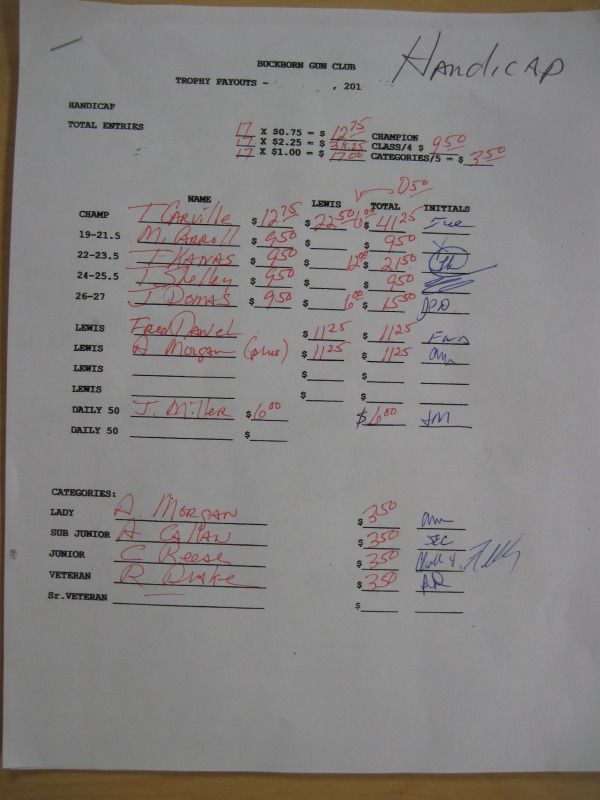 HANDICAP
BUCKHORN GUN CLUB
TROPHY PAYOUTS - , 201
HANDICAP
TOTAL ENTRIES 17 X $0.75 = $ 12.75 CHAMPION
17 X $2.25 = $ 38.25 CLASS/4 $ 9.50
17 X $1.00 = $ 17.00 CATEGORIES/5 = $ 3.50
D50
NAME LEWIS TOTAL INITIALS
CHAMP T CARVILLE $ 12.75 $ 22.50 6.00 $ 41.25
19-21.5 M. CARROLL $ 9.50 $ $ 9.50
22-23.5 T HANAS $ 9.50 12.00 $ 21.50 TH
24-25.5 T Shelley $ 9.50 $ $ 9.50
26-27 J DOMAS $ 9.50 $ 6.00 $ 15.50
LEWIS FRED DANIEL $ 11.25 $ 11.25
LEWIS A Morgan (plus) $ 11.25 $ 11.25 am
LEWIS $ $
LEWIS $ $
DAILY 50 J. MILLER $ 6.00 $ 6.00 JM
DAILY 50 $
CATEGORIES:
LADY A. MORGAN $ 3.50 am
SUB JUNIOR A CALLAN $ 3.50 JEC
JUNIOR C Reese $ 3.50
VETERAN R DRAKE $ 3.50 RR
Sr.VETERAN $